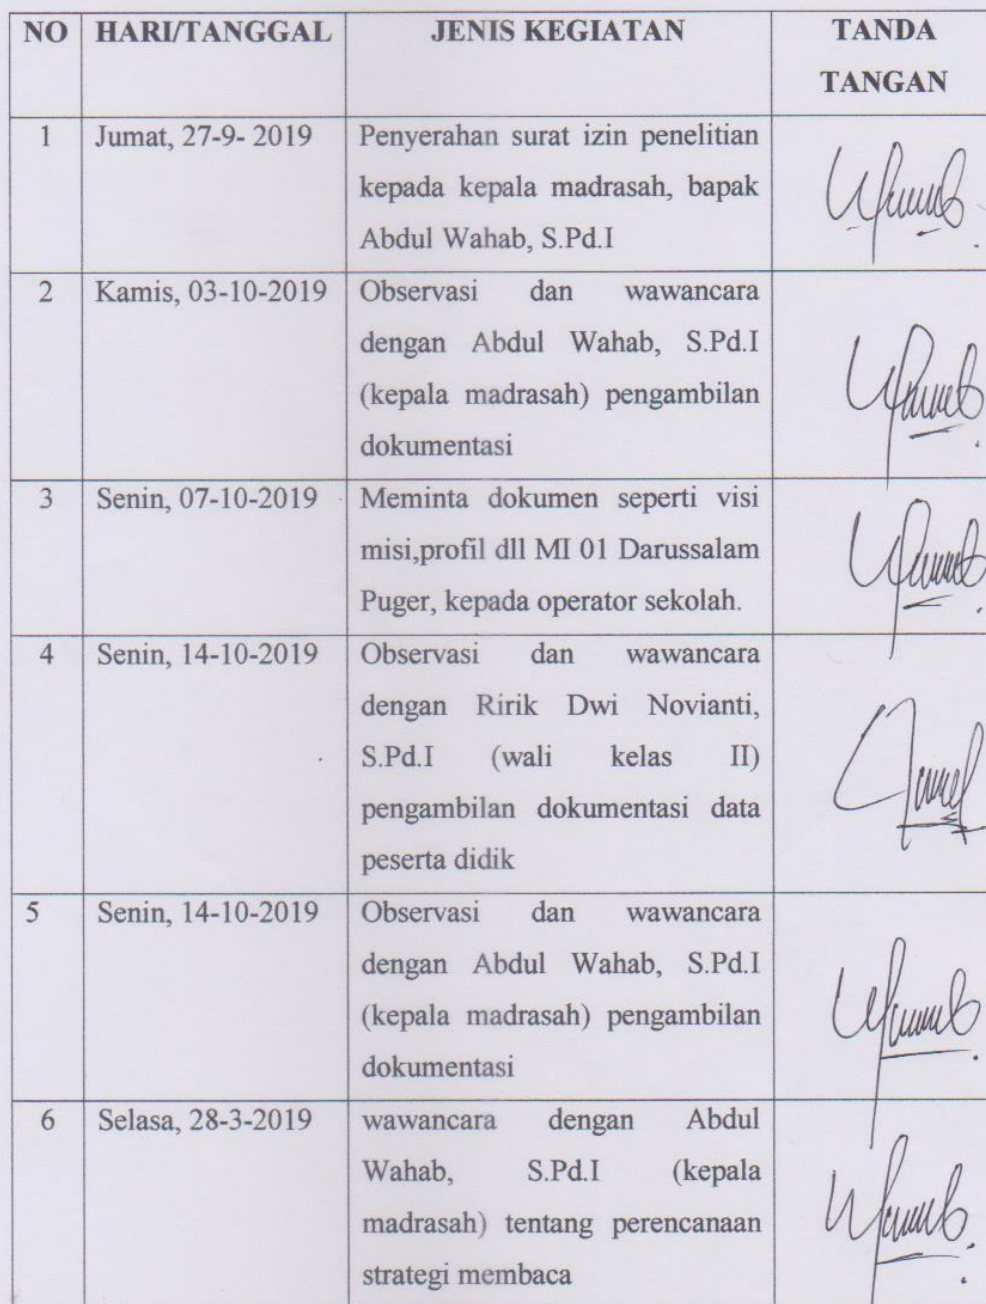 NO HARI/TANGGAL JENIS KEGIATAN TANDA
TANGAN
1 Jumat, 27-9- 2019 Penyerahan surat izin penelitian
kepada kepala madrasah, bapak
Abdul Wahab, S.Pd.I
2 Kamis, 03-10-2019 Observasi dan wawancara
dengan Abdul Wahab, S.Pd.I
(kepala madrasah) pengambilan
dokumentasi
3 Senin, 07-10-2019 Meminta dokumen seperti visi
misi,profil dll MI 01 Darussalam
Puger, kepada operator sekolah.
4 Senin, 14-10-2019 Observasi dan wawancara
dengan Ririk Dwi Novianti,
S.Pd.I (wali kelas II)
pengambilan dokumentasi data
peserta didik
5 Senin, 14-10-2019 Observasi dan wawancara
dengan Abdul Wahab, S.Pd.I
(kepala madrasah) pengambilan
dokumentasi
6 Selasa, 28-3-2019 wawancara dengan Abdul
Wahab, S.Pd.I (kepala
madrasah) tentang perencanaan
strategi membaca